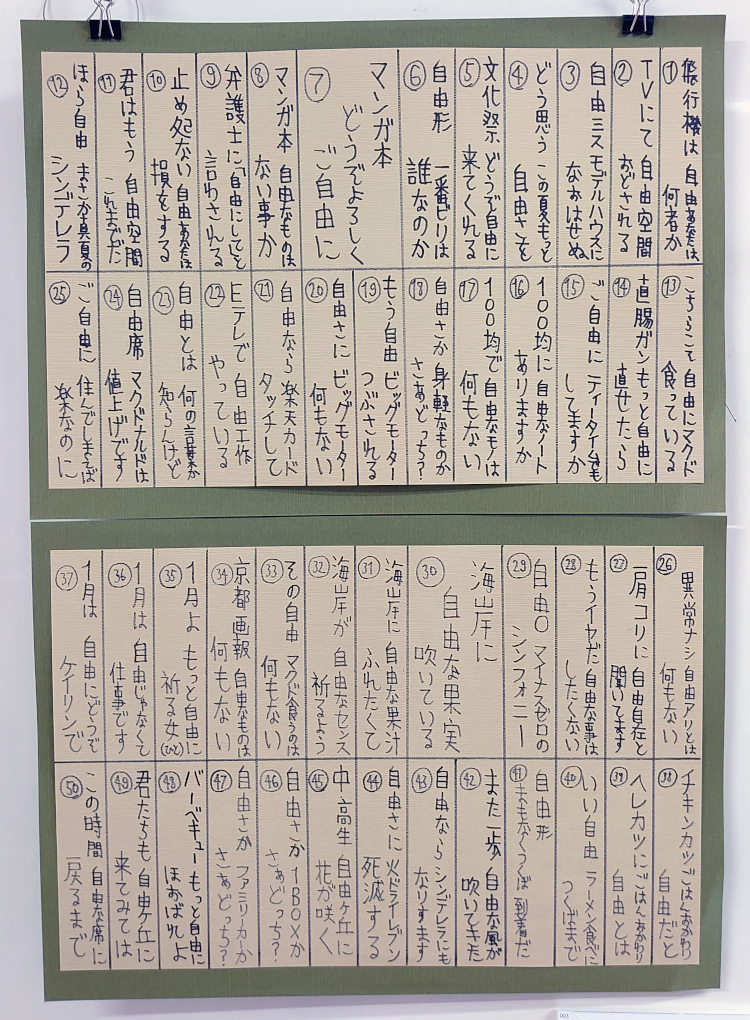 ① 飛行機は 自由あなたは
何者か
② TVにて 自由空間
おどされる
③ 自由ミス モデルハウスに
なおはせぬ
④ どう思う この夏もっと
自由さを
⑤ 文化祭 どうぞ自由に
来てくれる
⑥ 自由形 一番ビリは
誰なのか
⑦ マンガ本
どうぞよろしく
ご自由に
⑧ マンガ本 自由なものは
ない事か
⑨ 弁護士に「自由にして」と
言わされる
⑩ 止め処ない 自由あなたは
損をする
⑪ 君はもう 自由空間
これまでだ
⑫ ほら自由 まさか真夏の
シンデレラ
⑬ こちらこそ 自由にマクド
食べっている
⑭ 直腸ガン もっと自由に
直せたら
⑮ ご自由に ティータイムでも
してますか
⑯ 100均に 自由なノート
ありますか
⑰ 100均で 自由なモノは
何もない
⑱ 自由さか 身軽なものか
さあどっち?
⑲ もう自由 ビッグモーター
つぶされる
⑳ 自由さに ビッグモーター
何もない
㉑ 自由なら 楽天カード
タッチして
㉒ Eテレで 自由工作
やっている
㉓ 自由とは 何の言葉か
知らんけど
㉔ 自由席 マクドナルドは
値上げです
㉕ ご自由に 住んでしまえば
楽なのに
㉖ 異常ナシ 自由アリとは
何もない
㉗ 肩コリに 自由自在と
聞いてます
㉘ もうイヤだ 自由な事は
したくない
㉙ 自由0 マイナスゼロの
シンフォニー
㉚ 海岸に
自由な果実
吹いている
㉛ 海岸に 自由な果汁
ふれたくて
㉜ 海岸が 自由なセンス
祈るよう
㉝ その自由 マクド食うのは
何もない
㉞ 京都画報 自由なものは
何もない
㉟ 1月よ もっと自由に
祈る女(ひと)
㊱ 1月は 自由じゃなくて
仕事です
㊲ 1月は 自由にどうぞ
ケイリンで
㊳ イナキンカツ ごはんおかわり
自由だと
㊴ ヘレカツに ごはんおかわり
自由とは
㊵ いい自由 ラーメン食べに
つくばまで
㊶ 自由形 まもなくつくば
到着だ
㊷ また一歩 自由な風が
吹いてきた
㊸ 自由なら シンデレラにも
なりすます
㊹ 自由さに 火ドライレブン
死滅する
㊺ 中高生 自由ヶ丘に
花が咲く
㊻ 自由さか 1BOXか
さあどっち?
㊼ 自由さか ファミリーカーか
さあどっち?
㊽ バーベキュー もっと自由に
ほおばれよ
㊾ 君たちも 自由ヶ丘に
来てみては
㊿ この時間 自由な席に
戻るまで
003